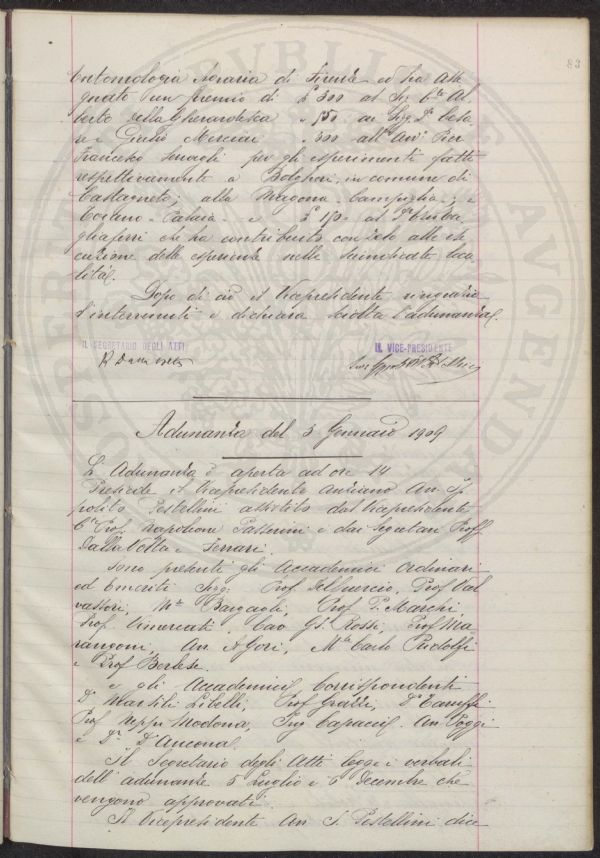 83
Entomologia Agraria di Firenze ed ha asse
gnato un premio di £ 300 al Sig. C.te Al
berto della Gherardesca " 150 ai Sigg. D.r Cesa
re e Giulio " 300 all'Avv. Pier
Francesco Serragli per gli esperimenti fatti
respettivamente a Bolgheri, in comune di
Castagneto; alla Magona - Campiglia - e
e £ 150 al D.r
che ha contribuito con zelo alle ese
cuzione delle esperienze nelle suindicate loca
lità.
Dopo di ciò il Vicepresidente ringrazia
gl'intervenuti e dichiara sciolta l'adunanza.
IL SEGRETARIO DEGLI ATTI
IL VICE-PRESIDENTE
Adunanza del 3 Gennaio 1909
L'Adunanza è aperta ad ore 14
Presiede il Vicepresidente anziano Avv. Ip
polito Pestellini assistito dal Vicepresidente
C.te Prof. Napoleone Passerini e dai segretari Proff.
Dalla Volta e Ferrari.
Sono presenti gli Accademici ordinari
ed Emeriti Sigg: Prof. Del Guercio, Prof Val
vassori, M.se Bargagli, Prof. P. Marchi,
Prof. Vimercati, Cav. G. Rossi, Prof. Ma
rangoni, Av. A Gori, M.se Carlo Ridolfi
e Prof Berlese.
e gli Accademici Corrispondenti
D.r Martelli Libelli, Prof Grazzi, D.r Caruffi
Prof. Neppi Modona, Ing Capacci, Av. Poggi
e D.r D'Ancona.
Il Segretario degli Atti legge i verbali
dell'adunanze 5 Luglio e 6 Decembre che
vengono approvati.
Il Vicepresidente Avv I. Pestellini dice
PROSPERITATI PVBLICAE AVGENDAE